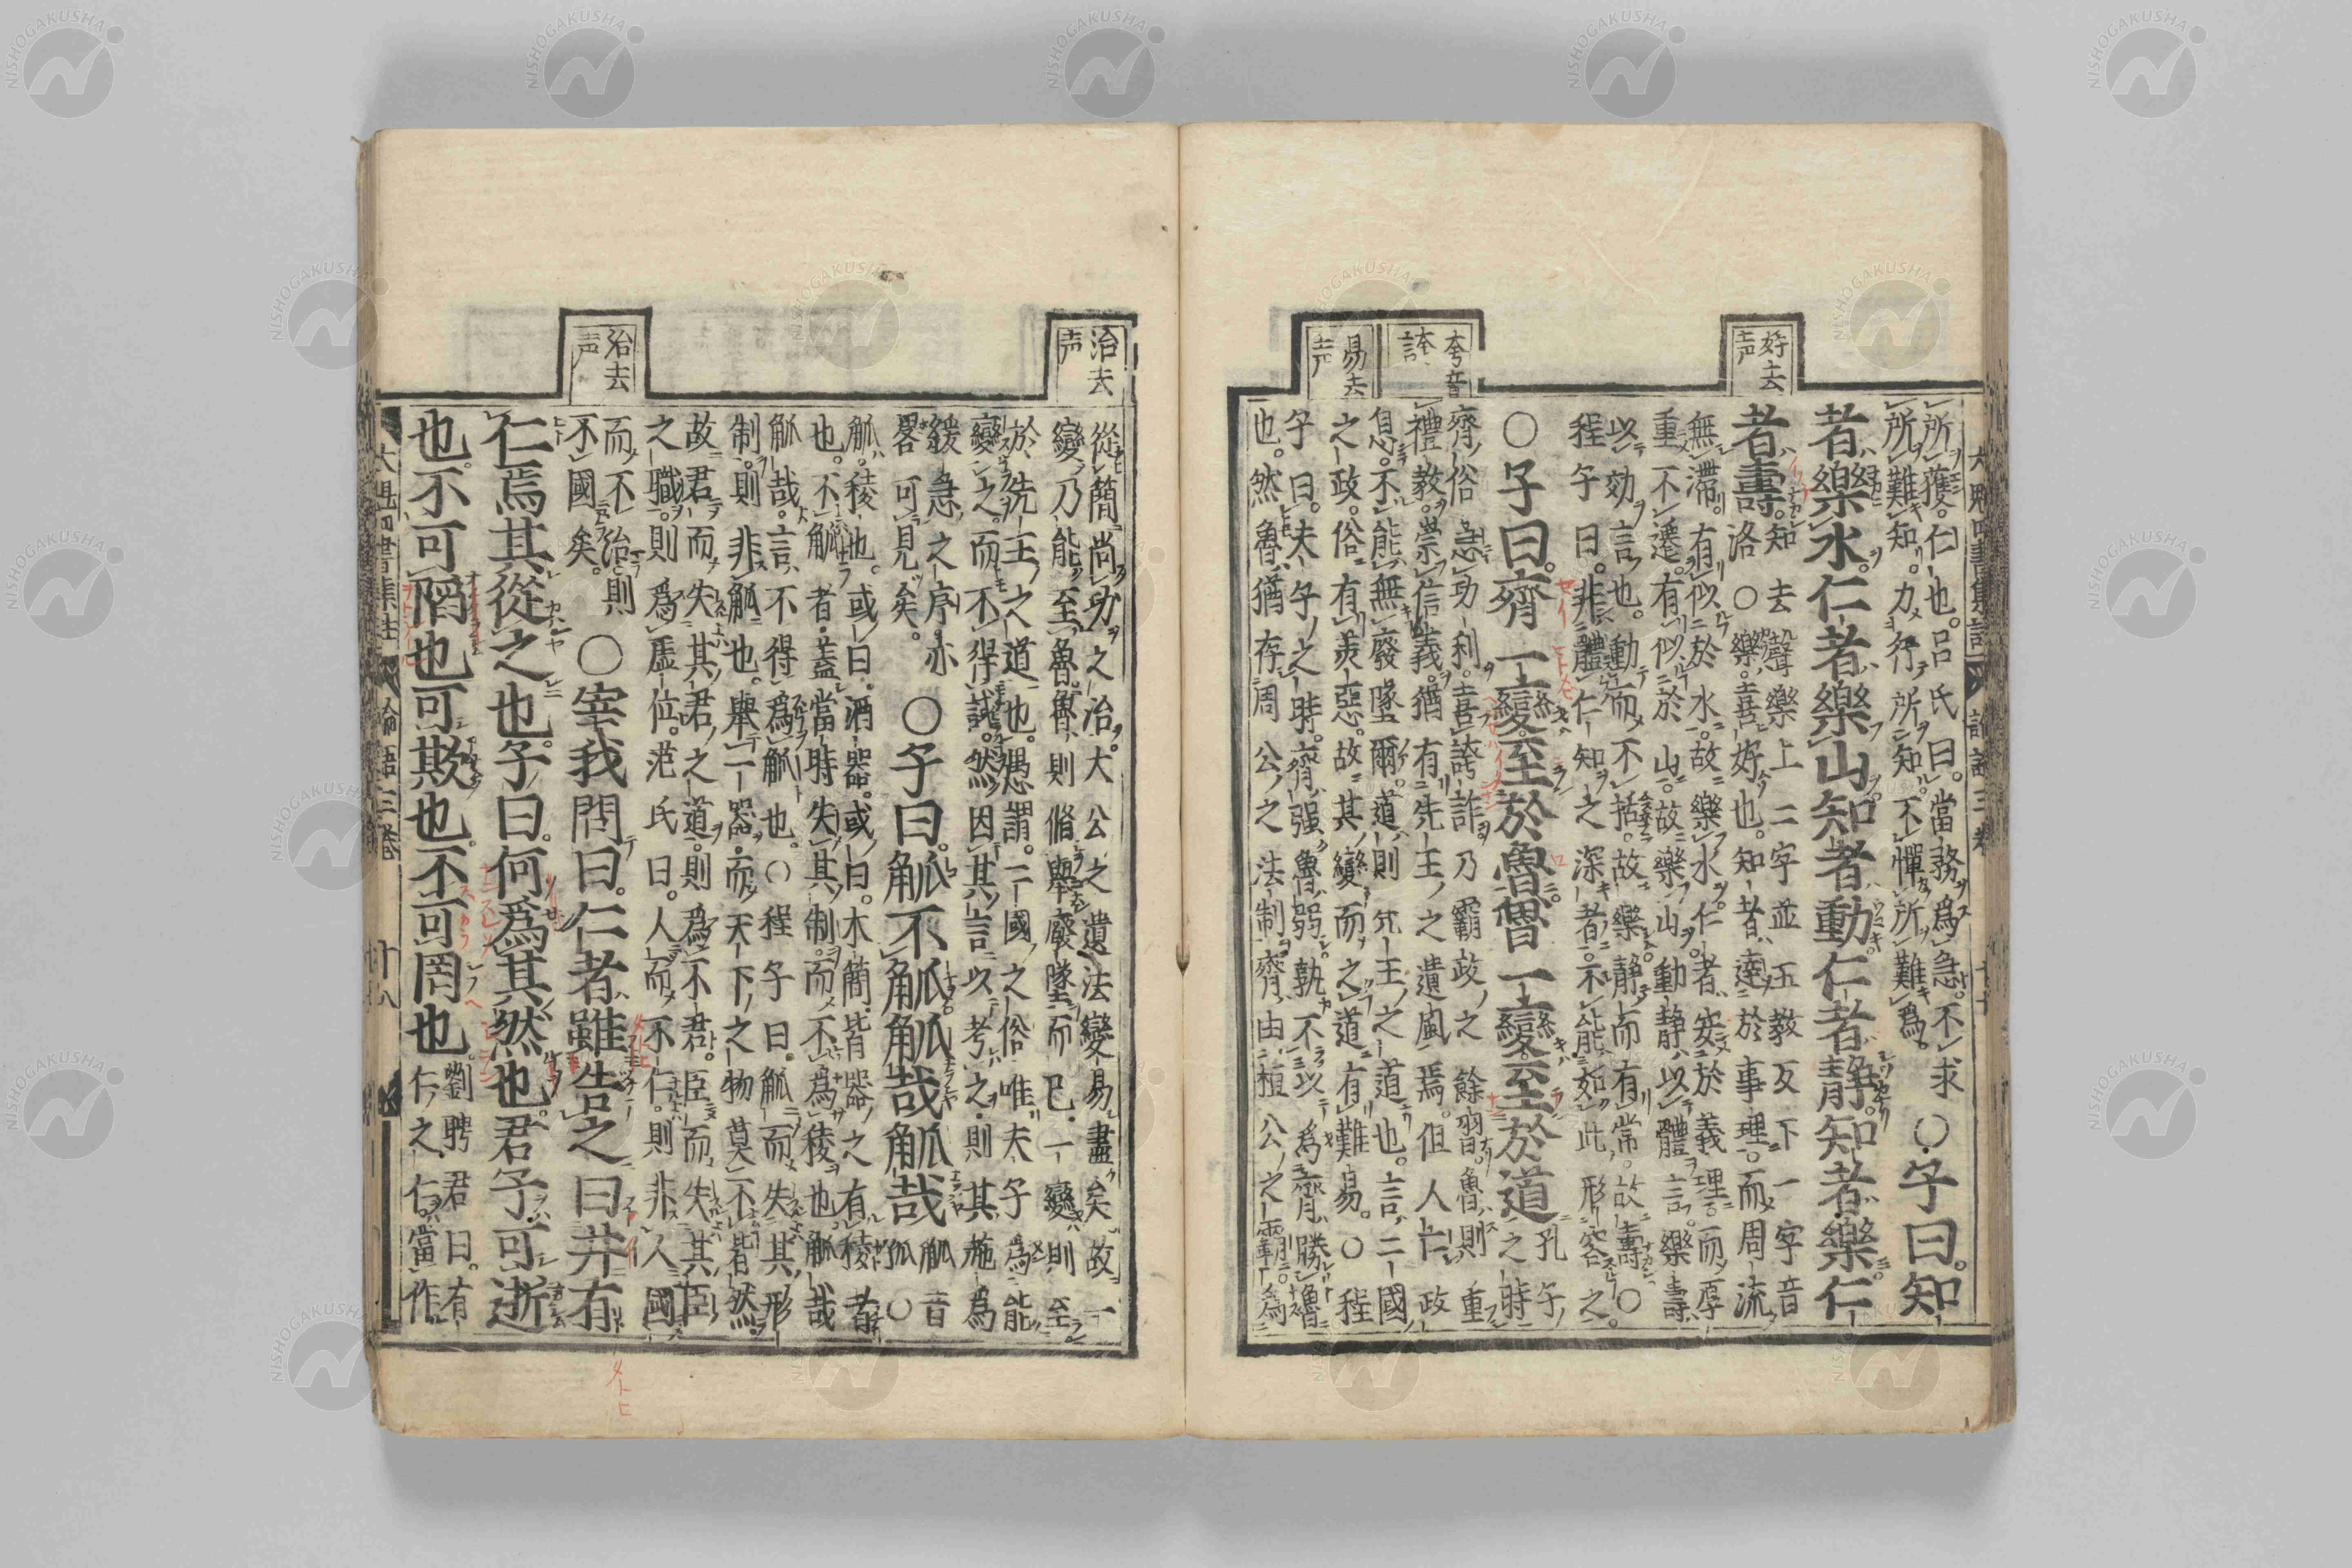 好去声
夸音誇
易去声
大魁四書集註 論語三卷
所獲。仁也。呂氏曰。當務爲急。不求
所難知。力行所知。不憚所難爲。
○子曰。知
者樂水。仁者樂山。知者動。仁者静。知者樂。仁
者壽。
知去聲樂上二字並五教反下一字音
洛○樂。喜好也。知者達於事理。而周流
無滯。有似於水。故樂水。仁者安於義理。而厚
重不遷。有似於山。故樂山。動静以體言。樂壽
以効言也。動而不括。故樂。静而有常。故壽○
程子曰。非體仁知之深者。不能如此形容之。
○子曰。齊一變。至於魯。魯一變。至於道
孔子
之時
齊俗急功利。喜誇詐。乃霸政之餘習。魯則重
禮教。崇信義。猶有先王之遺風焉。但人亡政
息。不能無廢墜爾。道則先王之道也。言二國
之政。俗有美惡。故其變而之道。有難易。○程
子曰。夫子之時。齊强魯弱。孰不以爲齊勝魯
也。然魯猶存周公之法制。齊由桓公之霸。爲
治去声
治去声
從簡尚功之治。大公之遺法變易盡矣。故一
變乃能至魯。魯則脩舉廢墜而已。一變則至
於先王之道也。愚謂。二國之俗唯夫子爲能
變之。而不得試。然因其言以考之。則其施爲
緩急之序。亦
畧可見矣。
○子曰。觚不觚。觚哉觚哉
觚音
孤○
觚。稜也。或曰。酒器。或曰。木簡。皆器之有稜者
也。不觚者。蓋當時失其制。而不爲稜也。觚哉
觚哉。言不得爲觚也。○程子曰。觚而失其形
制。則非觚也。舉一器。而天下之物莫不皆然。
故君而失其君之道。則爲不君。臣而失其臣
之職。則爲虛位。范氏曰。人而不仁。則非人。國
而不治則
不國矣。
○宰我問曰。仁者雖告之曰井有
仁焉其從之也。子曰。何爲其然也。君子可逝
也。不可陷也。可欺也。不可罔也。
劉聘君曰。有
仁之仁。當作
大魁四書集註 論語三卷 十八
NISHOGAKUSHA